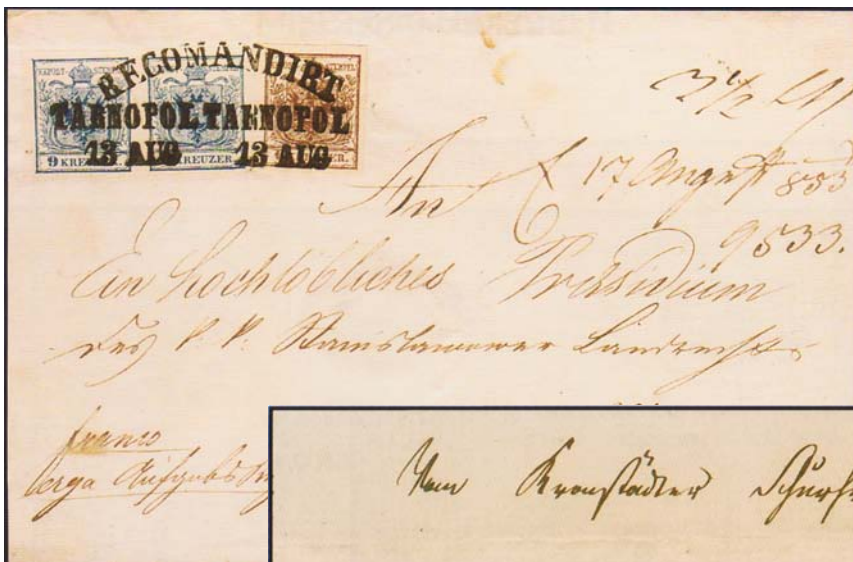 RECOMANDIRT
TARNOPOL TARNOPOL
13 AUG 13 AUG
9 KREUZER KREUZER
3 1/2
An
17 August 853
9533.
Ein Hochlöbliches Präsidium
des k. k. Stanislawower Landrechts
franco
Vom Kronstädter